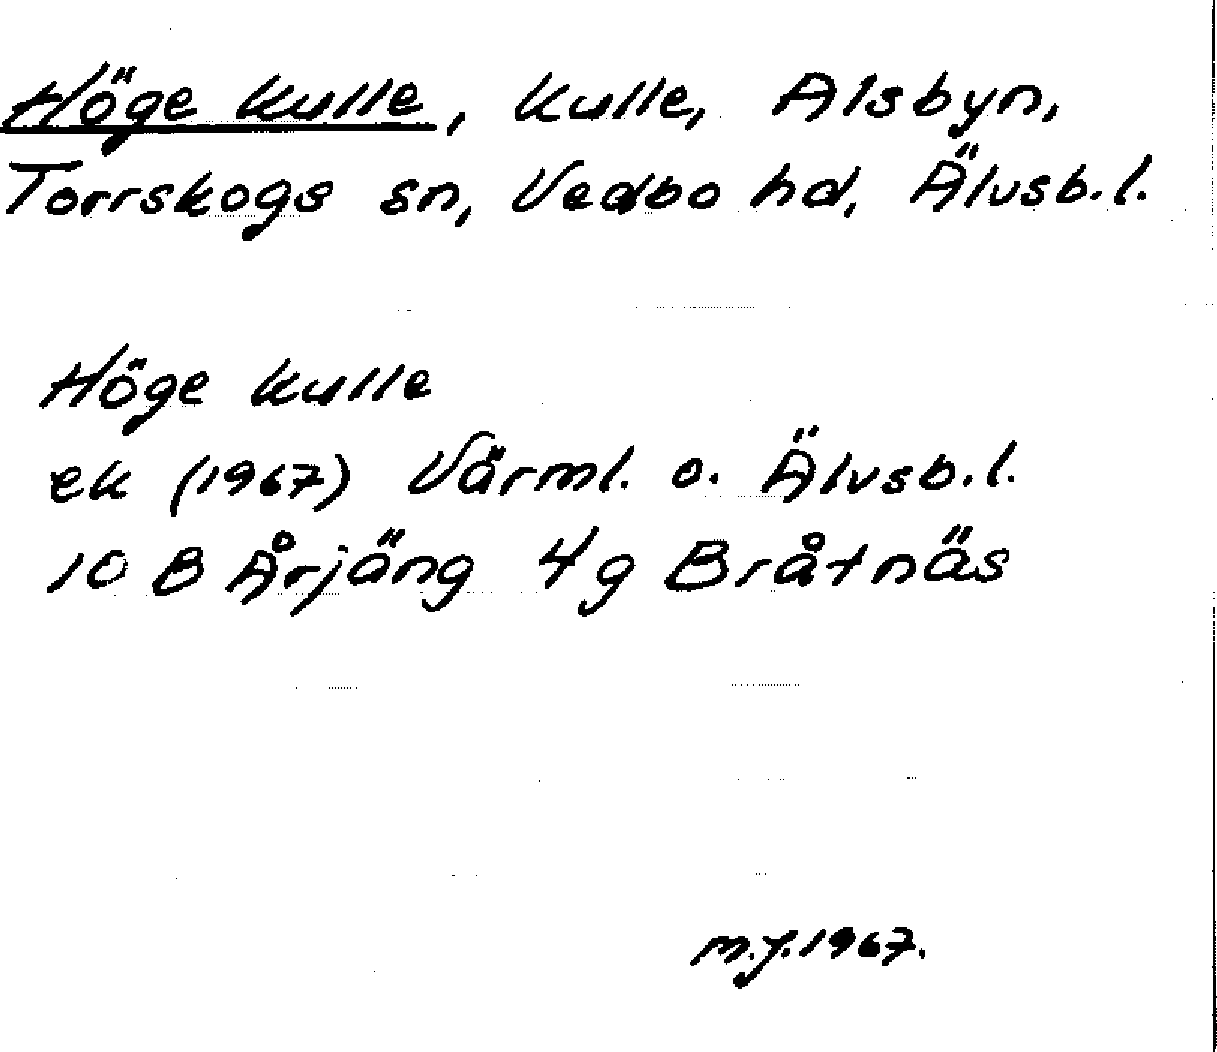 Höge kulle, kulle, Alsbyn,
Torrskogs sn, Vedbo hd, Älvsb.l.
Höge kulle
ek (1967) Värml. o. Älvsb.l.
10 B Årjäng 4g Bråtnäs
m.y.1967.